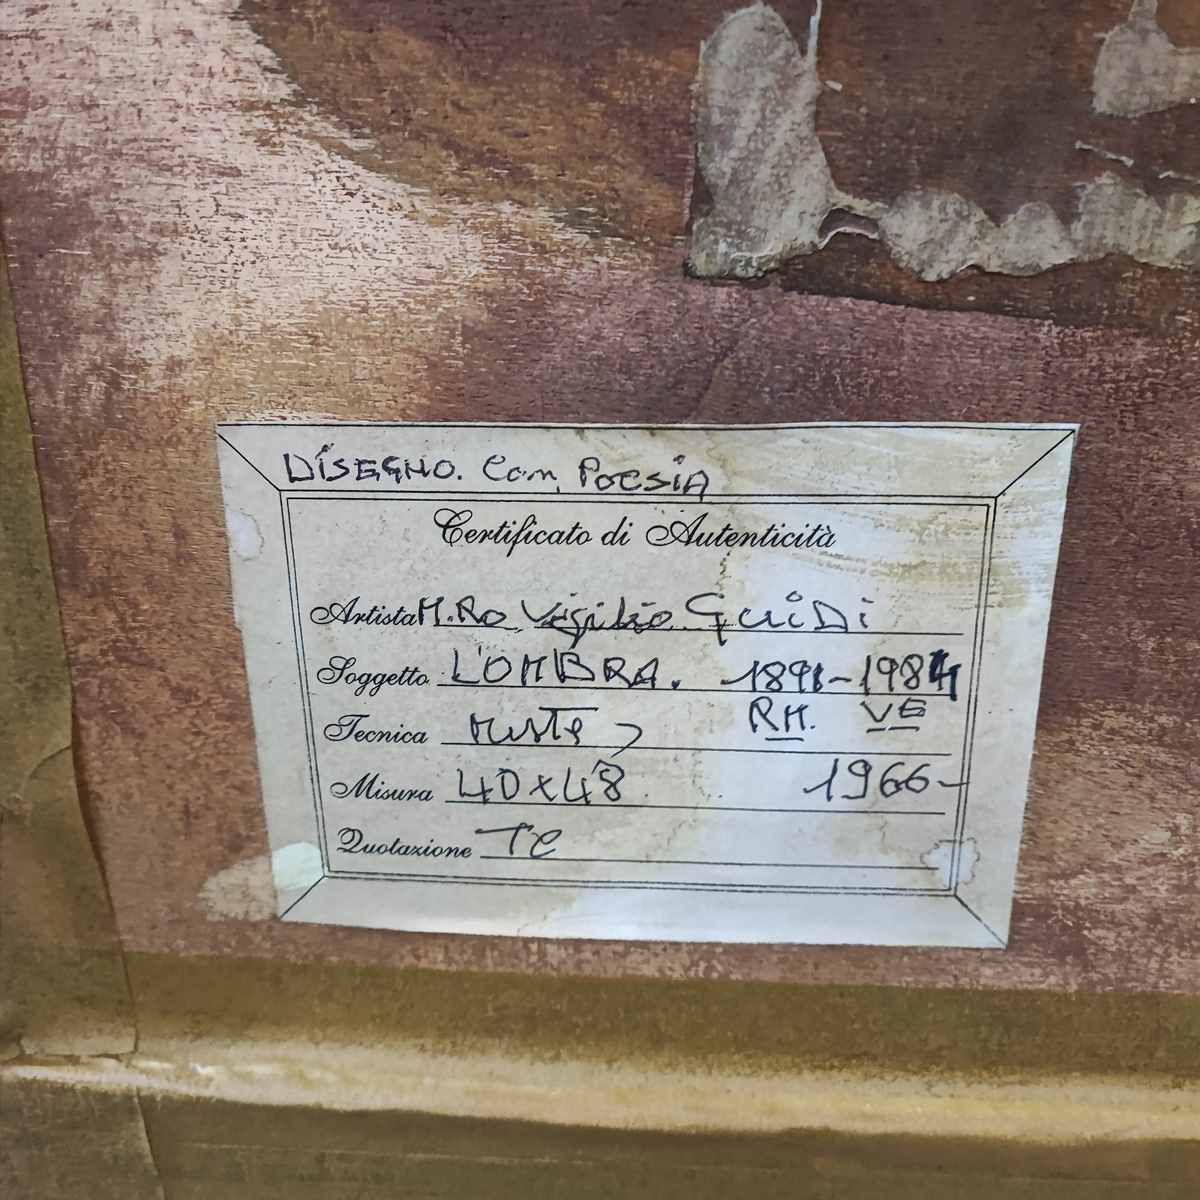 DISEGNO. Con POESIA
Certificato di Autenticità
Artista M.Ro Virgilio GUIDI
Soggetto L'OMBRA. 1891-1984
RM. VE
Tecnica MISTE
Misura 40x48 1966-
Quotazione TC